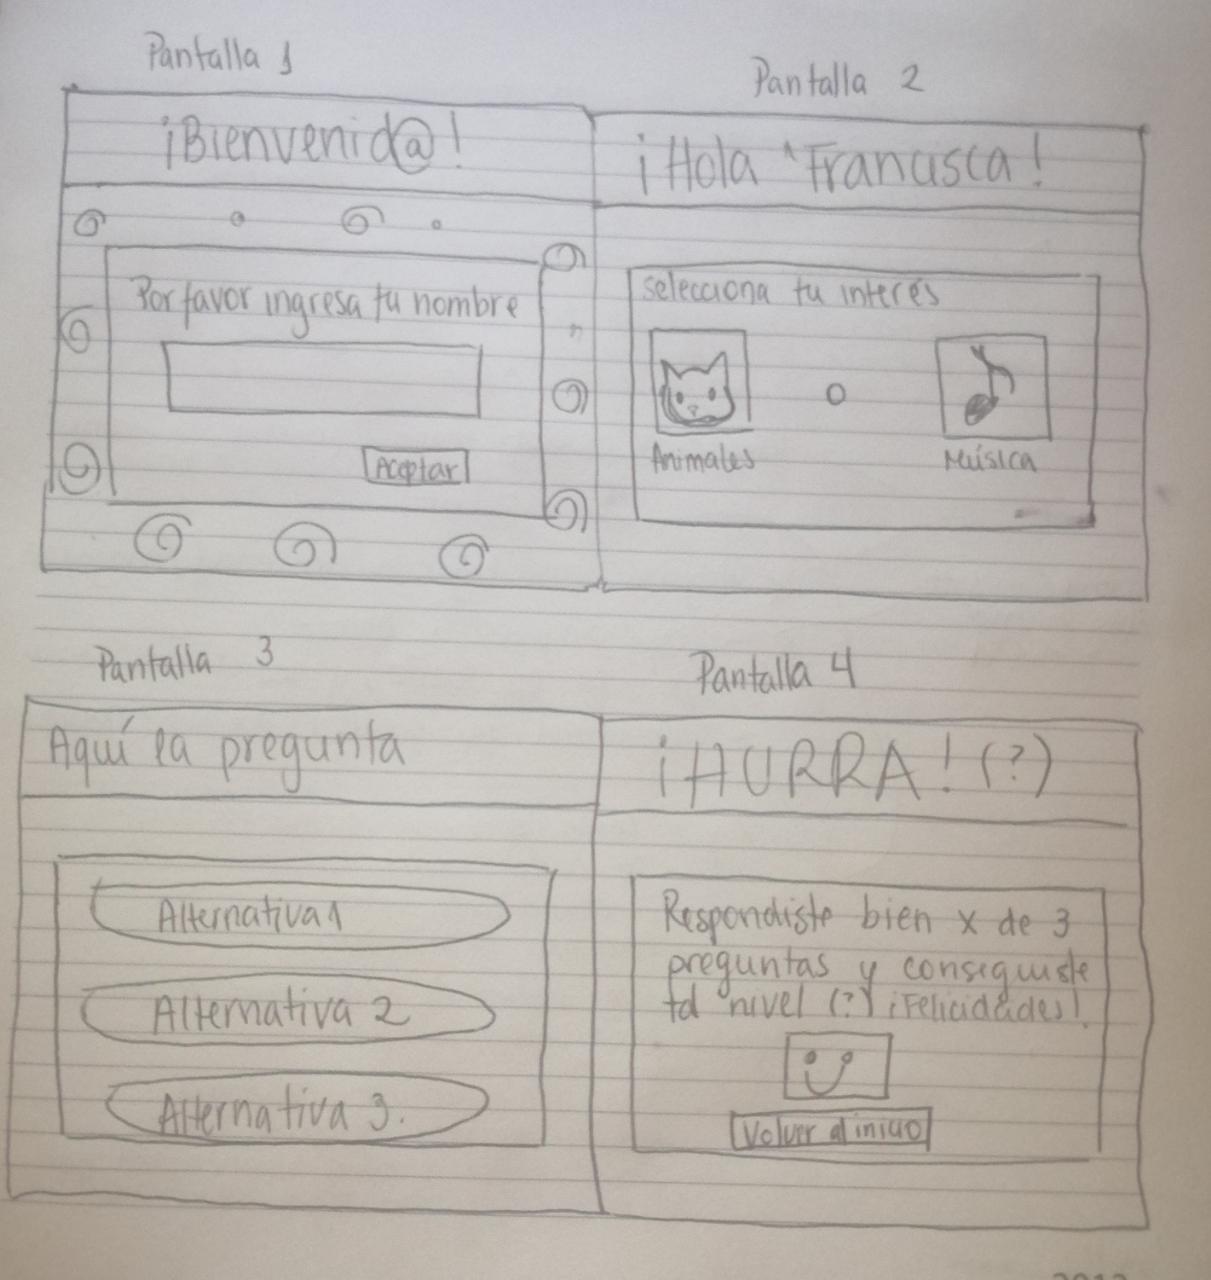 Pantalla 1
¡Bienvenid@!
Por favor ingresa tu nombre
Aceptar
Pantalla 2
¡Hola "Francisca!
selecciona tu interés
o
Animales
Música
Pantalla 3
Aquí la pregunta
Alternativa 1
Alternativa 2
Alternativa 3.
Pantalla 4
¡HURRA! (?)
Respondiste bien x de 3
preguntas y conseguiste
tal nivel (?) ¡Felicidades!
Volver al inicio